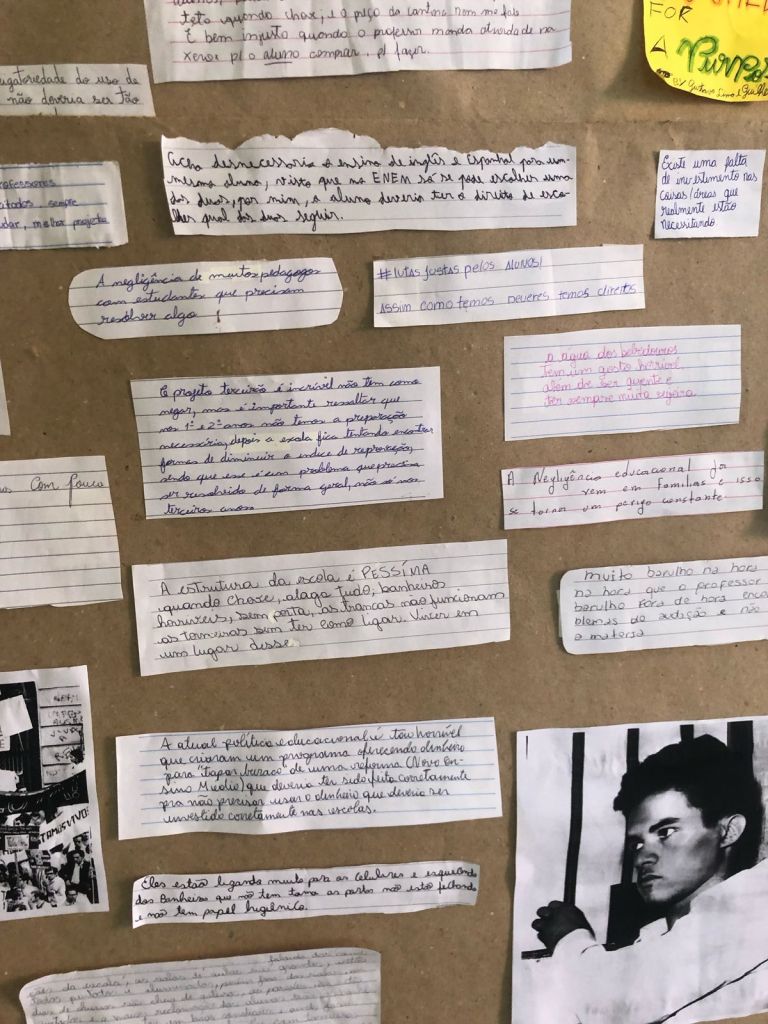 teto quando chove; e o preço da cantina nem me fale
É bem injusto quando o professor manda atividade na
xerox p/ o aluno comprar p/ fazer.
FOR
A
Purpo
do uso de
não deveria ser tão
Acho desnecessario o ensino de inglês e Espanhol para um
mesmo aluno, visto que no ENEM só se pode escolher uma
dos duos, por mim, o aluno deveria ter o direito de esco-
lher qual dos duos seguir.
Existe uma falta
de investimento nas
coisas/áreas que
realmente estão
necessitando.
rofessores
tados sempre
udar, melhor projeto
A negligência de muitos pedagogos
com estudantes que precisam
resolver algo !
#lutas justas pelos ALUNOS!
Assim como temos Deveres temos direitos
a água dos bebedouros
Tem um gosto horrivel
além de ser quente e
ter sempre muita
O projeto terceirão é incrível não tem como
negar, mas é importante ressaltar que
nos 1º e 2º anos não temos a preparação
necessária, depois a escola fica tentando encontrar
formas de diminuir o indice de reprovação,
sendo que esse é um problema que precisa
ser resolvido de forma geral, não só nos
terceiros anos.
com pouco
A Negligência educacional já
vem em familias e isso
se torna um perigo constante
A estrutura da escola é PÉSSIMA
quando chove, alaga tudo, banheiros
horríveis, sem porta, as trancas não funcionam
as torneiras sem ter como ligar. Viver em
um lugar desse
muito barulho na hora
na hora que o professor
barulho fora de hora
olemas de audição e não
a materia
A atual política educacional é tão horrível
que criaram um programa oferecendo dinheiro
para "tapar buraco" de uma reforma (Novo en-
sino Médio) que deveria ter sido feito corretamente
pra não precisar usar o dinheiro que deveria ser
investido corretamente nas escolas.
TAMOS VIVOS
Eles estão ligando muito para os celulares e esquecendo
dos Banheiros que não tem torna as portas não estão fechando
e não tem papel higiênico.